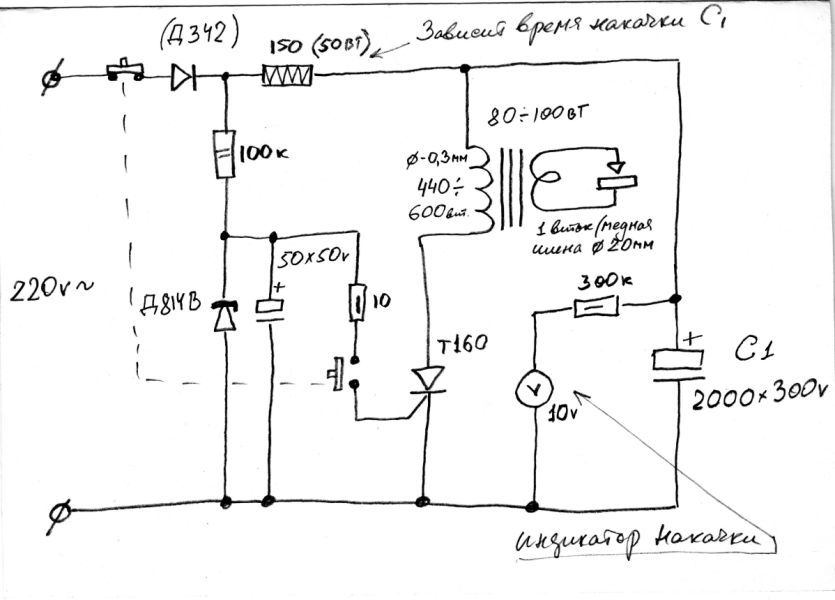 (Д342)
150 (50вт)
Зависит время накачки C1
80÷100вт
100к
ø-0,3мм
440÷
600вит.
1 виток (медная
шина ø 20мм
50×50v
220v~
Д814В
10
300к
Т160
+
+
C1
2000×300v
V
10v
индикатор накачки